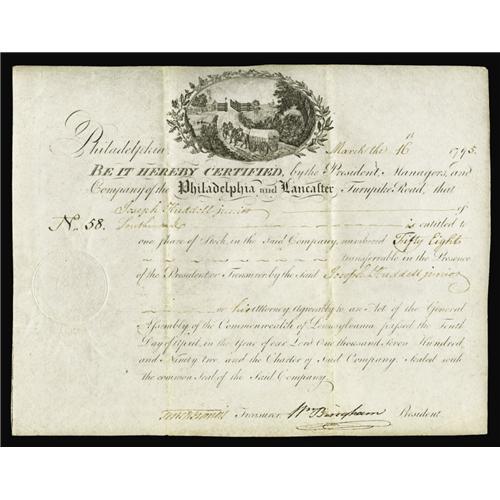 Philadelphia March the 16th 1795.
BE IT HEREBY CERTIFIED, by the President, Managers, and
Company of the Philadelphia and Lancaster Turnpike Road, that
Joseph Huddell junior of
No. 58. Southwark is entitled to
one share of Stock, in the Said Company, numbered Fifty Eight
transferrable in the Presence
of the President or Treasurer by the Said Joseph Huddell junior
or his Attorney. Agreeably to an Act of the General
Assembly of the Commonwealth of Pennsylvania passed the Ninth
Day of April, in the Year of our Lord One thousand Seven Hundred,
and Ninety two, and the Charter of Said Company. Sealed with
the common Seal of the Said Company.
Treasurer. Wm Bingham President.